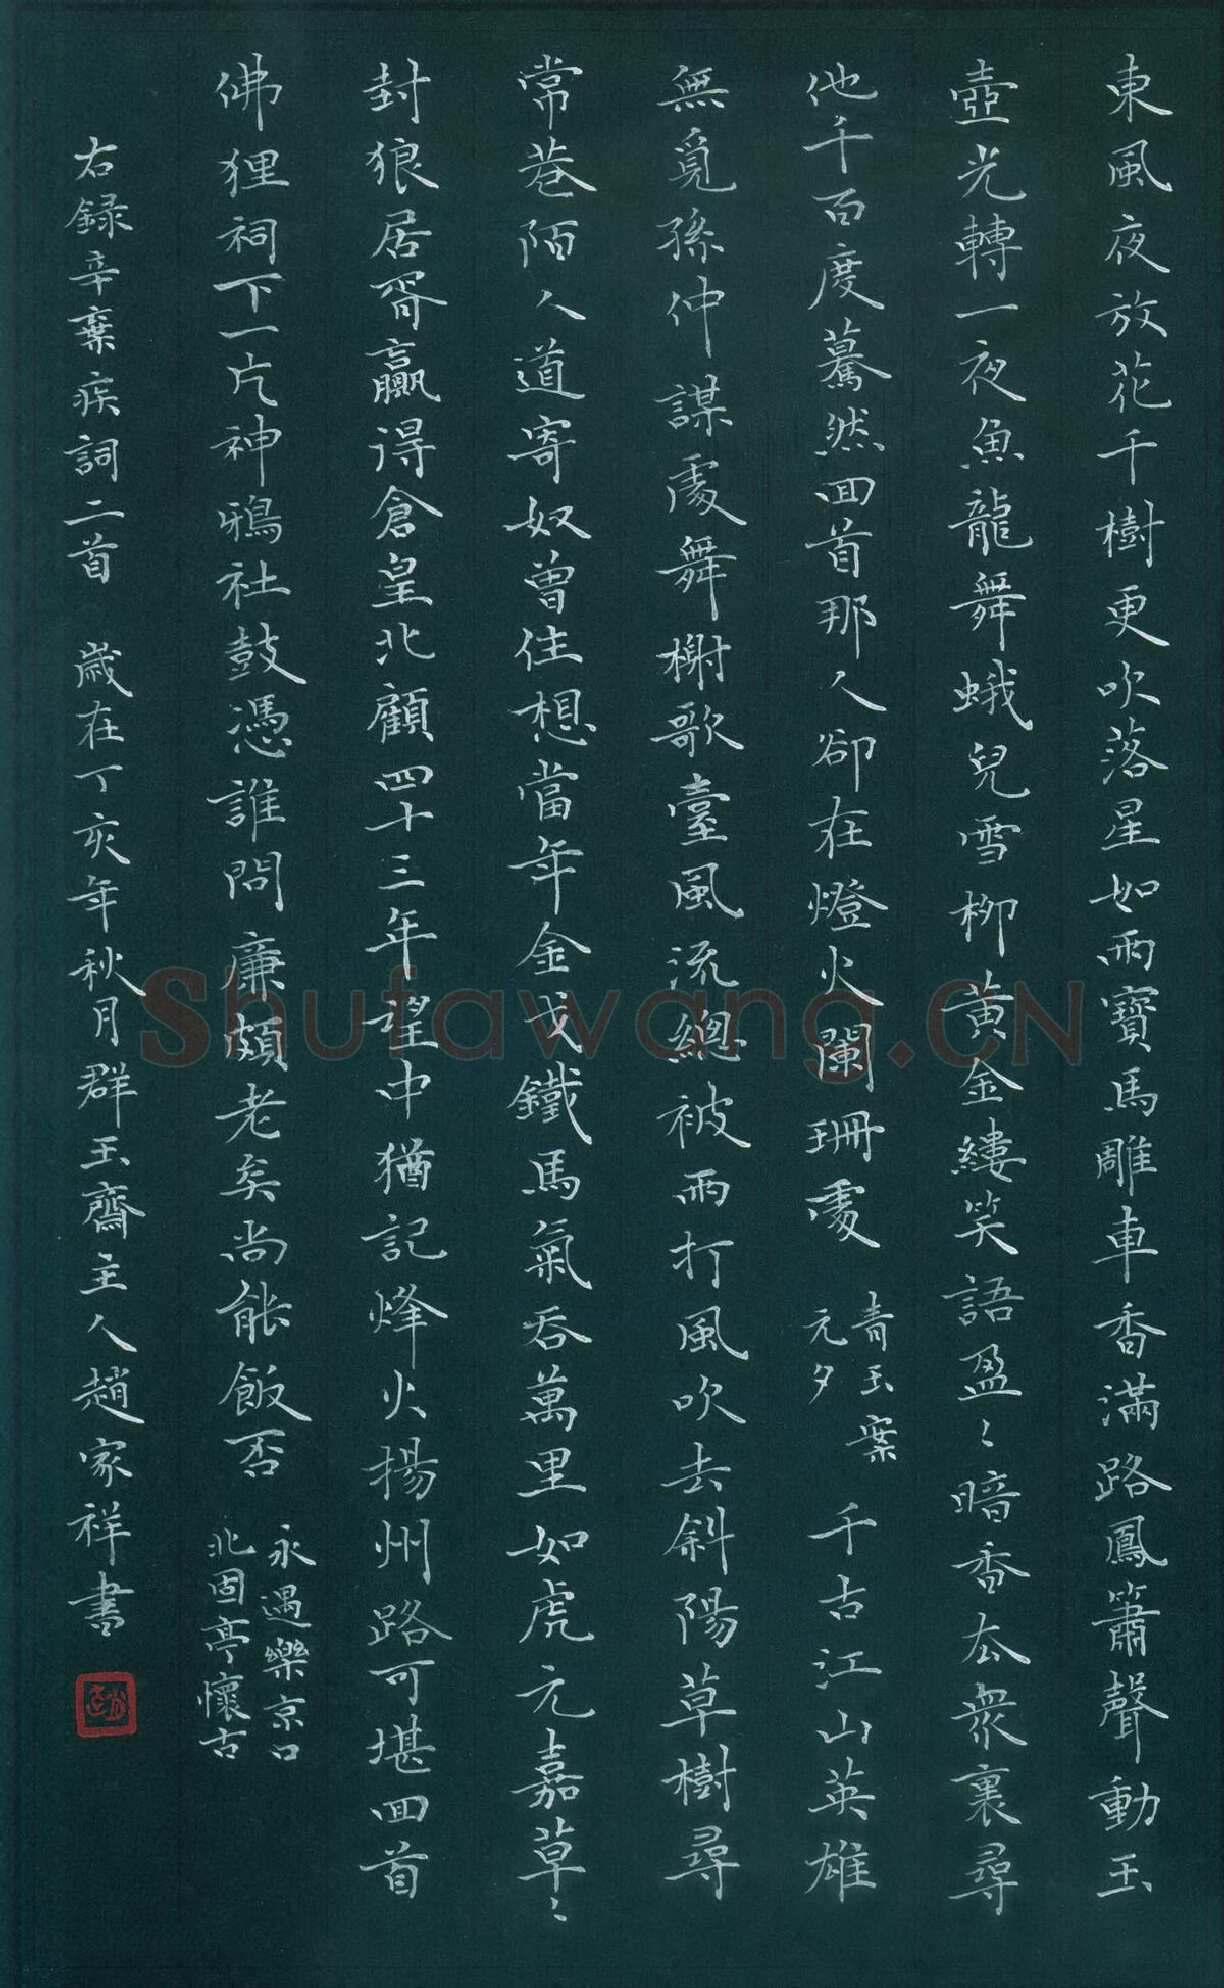 東風夜放花千樹更吹落星如雨寶馬雕車香滿路鳳簫聲動玉
壺光轉一夜魚龍舞蛾兒雪柳黃金縷笑語盈〻暗香厺衆裏尋
他千百度驀然回首那人卻在燈火闌珊處 青玉案 元夕 千古江山英雄
無覓孫仲謀處舞榭歌臺風流總被雨打風吹去斜陽草樹尋
常巷陌人道寄奴曾住想當年金戈鐵馬氣吞萬里如虎元嘉草〻
封狼居胥贏得倉皇北顧四十三年望中猶記烽火揚州路可堪回首
佛狸祠下一片神鴉社鼓憑誰問廉頗老矣尚能飯否 永遇樂京口 北固亭懷古
右録辛棄疾詞二首 歲在丁亥年秋月群玉齋主人趙家祥書
Shufawang.CN